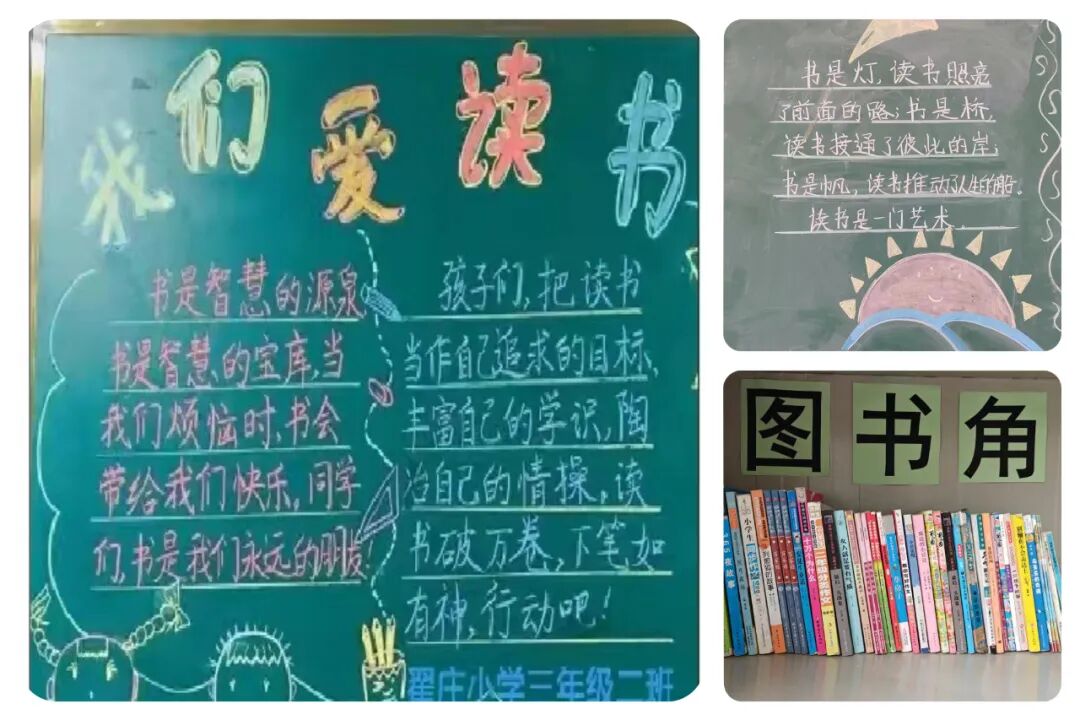 我们爱读书
书是智慧的源泉
书是智慧的宝库,当
我们烦恼时,书会
带给我们快乐,同学
们,书是我们永远的朋友!
孩子们,把读书
当作自己追求的目标,
丰富自己的学识,陶
冶自己的情操,读
书破万卷,下笔如
有神,行动吧!
翟庄小学三年级二班
书是灯,读书照亮
了前面的路;书是桥,
读书接通了彼此的岸;
书是帆,读书推动了人生的船。
读书是一门艺术.
图书角
365夜故事
小学生